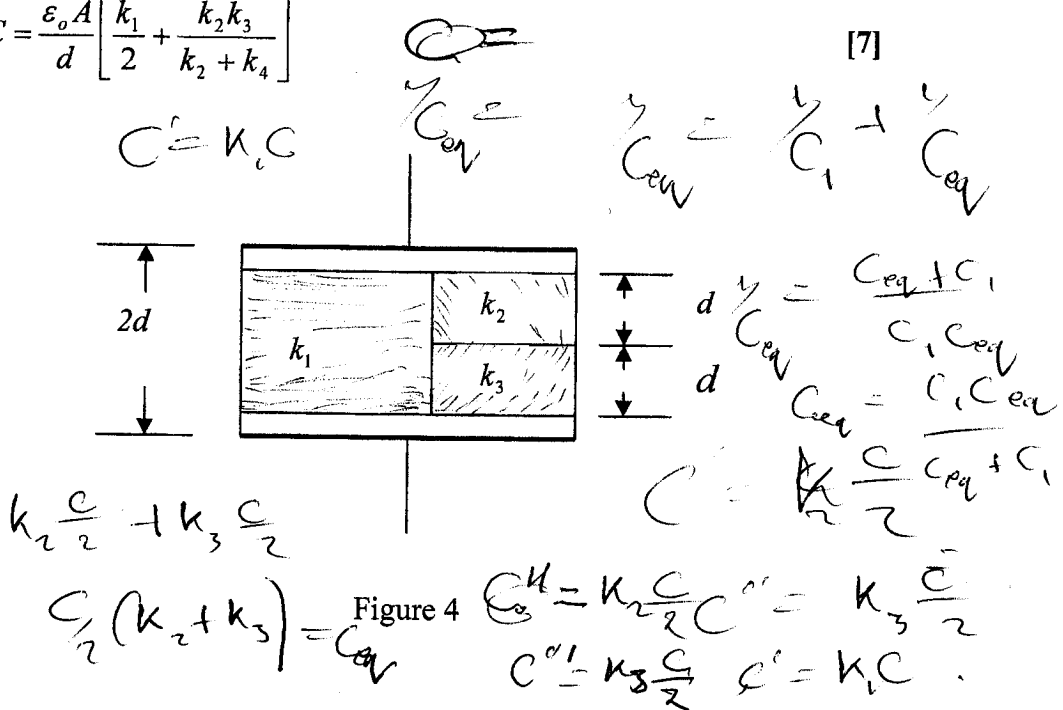 C = \frac{ε_o A}{d} \left[ \frac{k_1}{2} + \frac{k_2 k_3}{k_2 + k_4} \right]
[7]
C' = K_1 C
1/C_{eq} =
1/C_{eq} = 1/C_1 + 1/C_{eq}
2d
k_1
k_2
k_3
d
d
1/C_{eq} = \frac{C_{eq} + C_1}{C_1 C_{eq}}
C_{eq} = \frac{C_1 C_{eq}}{C_{eq} + C_1}
k_2 \frac{C}{2} + k_3 \frac{C}{2}
C/2 (K_2 + K_3) = C_{eq}
Figure 4
C'' = K_2 \frac{C}{2}
C''' = K_3 \frac{C}{2}
C''' = K_3 \frac{C}{2}
C' = K_1 C .